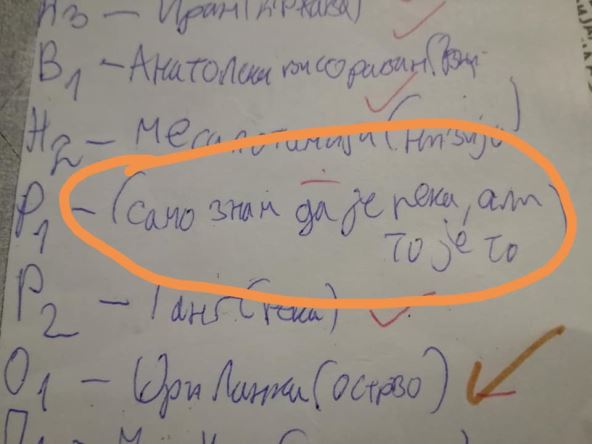 Н3 – Иран (држава)
В1 – Анатолска висораван
Н2 – Месопотамија (низија)
Р1 – (само знам да је река, али
то је то)
Р2 – Ганг (река)
О1 – Шри Ланка (острво)